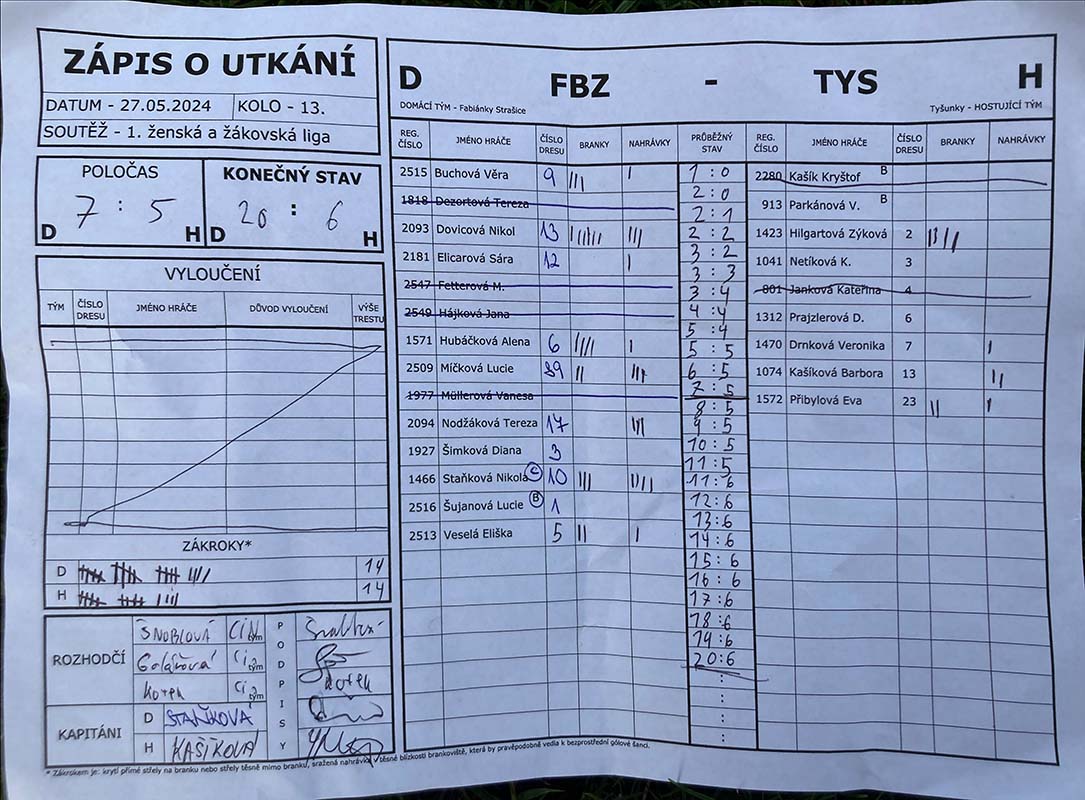 ZÁPIS O UTKÁNÍ
DATUM - 27.05.2024 KOLO - 13.
SOUTĚŽ - 1. ženská a žákovská liga
POLOČAS KONEČNÝ STAV
7 : 5 20 : 6
D H D H
VYLOUČENÍ
TÝM ČÍSLO DRESU JMÉNO HRÁČE DŮVOD VYLOUČENÍ VÝŠE TRESTU
ZÁKROKY*
D
H 14
ROZHODČÍ
ŠNOBLOVÁ
tým
tým
Kotek
tým
PODPISY
Kotek
KAPITÁNI
D STAŇKOVÁ
H KAŠÍKOVÁ
* Zákrokem je: krytí přímé střely na branku nebo střely těsně mimo branku, sražená nahrávka v těsné blízkosti brankoviště, která by pravěpodobně vedla k bezprostřední gólové šanci.
D FBZ - TYS H
DOMÁCÍ TÝM - Fabiánky Strašice Tyšunky - HOSTUJÍCÍ TÝM
REG. ČÍSLO JMÉNO HRÁČE ČÍSLO DRESU BRANKY NAHRÁVKY PRŮBĚŽNÝ STAV REG. ČÍSLO JMÉNO HRÁČE ČÍSLO DRESU BRANKY NAHRÁVKY
2515 Buchová Věra 9 III I
1818 Dezortová Tereza
2093 Dovicová Nikol 13 IIIIII III
2181 Elicarová Sára 12 I
2547 Fetterová M.
2549 Hájková Jana
1571 Hubáčková Alena 6 IIII I
2509 Míčková Lucie 89 II III
1977 Müllerová Vanesa
2094 Nodžáková Tereza 17 III
1927 Šimková Diana 3
1466 Staňková Nikola C 10 III IIII
2516 Šujanová Lucie B 1
2513 Veselá Eliška 5 II I
1 : 0
2 : 0
2 : 1
2 : 2
3 : 2
3 : 3
3 : 4
4 : 4
5 : 4
5 : 5
6 : 5
7 : 5
8 : 5
9 : 5
10 : 5
11 : 5
11 : 6
12 : 6
13 : 6
14 : 6
15 : 6
16 : 6
17 : 6
18 : 6
19 : 6
20 : 6
:
:
:
2280 Kašík Kryštof B
913 Parkánová V. B
1423 Hilgartová Zýková 2 IIII
1041 Netíková K. 3
801 Janková Kateřina 4
1312 Prajzlerová D. 6
1470 Drnková Veronika 7 I
1074 Kašíková Barbora 13 II
1572 Přibylová Eva 23 II I